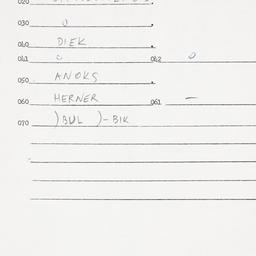 030 0 .
040 DIEK .
041 0 042 0
050 ANOKS .
060 HERNER 061 —
070 )BUL )-BIK